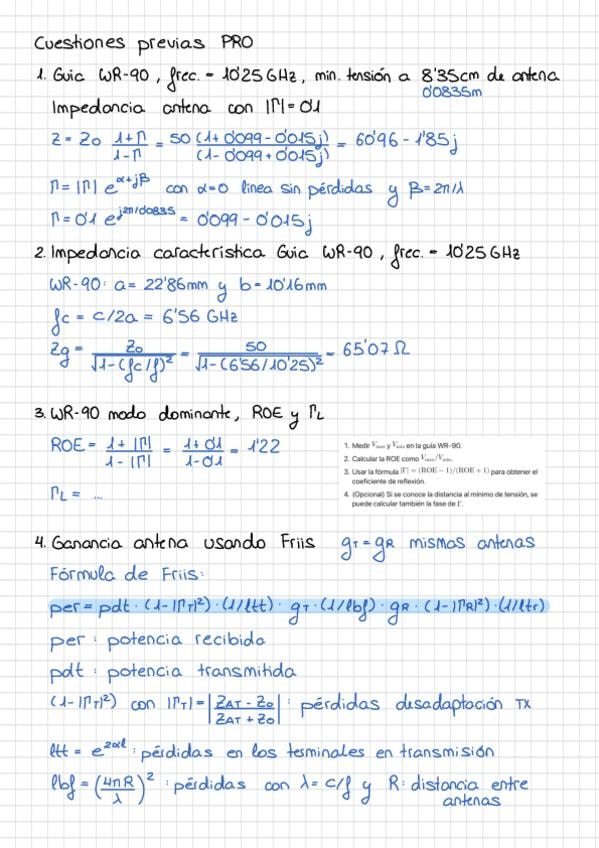 Cuestiones previas PRO
1. Guía WR-90, frec. = 10'25 GHz, min. tensión a 8'35cm de antena
0'0835m
Impedancia antena con |Γ| = 0'1
Z = Z0 (1+Γ)/(1-Γ) = 50 (1+0'099-0'015j)/(1-0'099+0'015j) = 60'96 - 1'85j
Γ = |Γ| e^(α+jβ) con α=0 línea sin pérdidas y β=2π/λ
Γ = 0'1 e^(j2π/0'0835) = 0'099 - 0'015j
2. Impedancia característica Guía WR-90, frec. = 10'25 GHz
WR-90: a = 22'86mm y b = 10'16mm
fc = c/2a = 6'56 GHz
Zg = Z0/√(1-(fc/f)²) = 50/√(1-(6'56/10'25)²) = 65'07 Ω
3. WR-90 modo dominante, ROE y ΓL
ROE = (1+|Γ|)/(1-|Γ|) = (1+0'1)/(1-0'1) = 1'22
ΓL = ...
1. Medir Vmax y Vmin en la guía WR-90.
2. Calcular la ROE como Vmax/Vmin.
3. Usar la fórmula |Γ| = (ROE − 1)/(ROE + 1) para obtener el
coeficiente de reflexión.
4. (Opcional) Si se conoce la distancia al mínimo de tensión, se
puede calcular también la fase de Γ.
4. Ganancia antena usando Friis gT = gR mismas antenas
Fórmula de Friis:
per = pdt · (1-|ΓT|²) · (1/ltt) · gT · (1/lbf) · gR · (1-|ΓR|²) · (1/ltr)
per : potencia recibida
pdt : potencia transmitida
(1-|ΓT|²) con |ΓT| = |(ZAT - Z0)/(ZAT + Z0)| : pérdidas desadaptación TX
ltt = e^(2αl) : pérdidas en los terminales en transmisión
lbf = (4πR/λ)² : pérdidas con λ = c/f y R: distancia entre
antenas